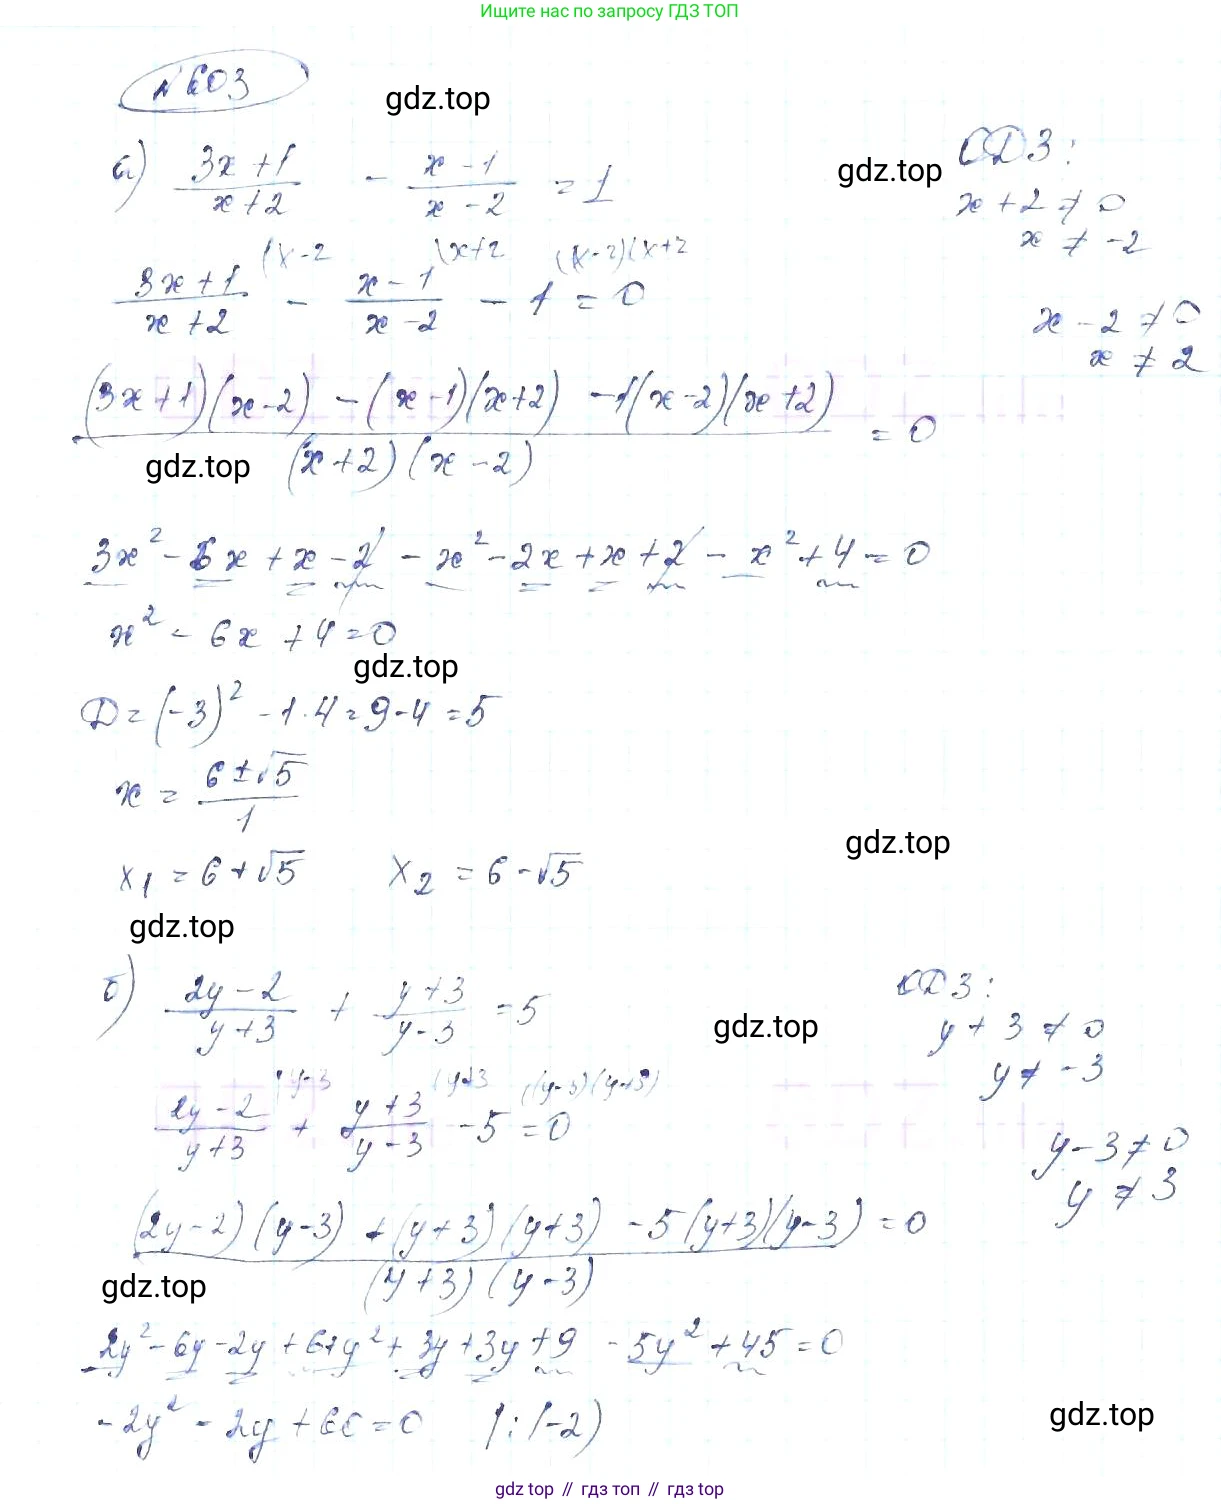 Ищите нас по запросу ГДЗ ТОП
№603
gdz.top
а) (3x+1)/(x+2) - (x-1)/(x-2) = 1
gdz.top
ОДЗ:
x+2≠0
x≠-2
(x-2 (x+2 (x-2)(x+2
(3x+1)/(x+2) - (x-1)/(x-2) - 1 = 0
x-2≠0
x≠2
((3x+1)(x-2) - (x-1)(x+2) - 1(x-2)(x+2))/((x+2)(x-2)) = 0
gdz.top
3x² - 6x + x - 2 - x² - 2x + x + 2 - x² + 4 = 0
x² - 6x + 4 = 0
gdz.top
D = (-3)² - 1·4 = 9-4 = 5
x = (6±√5)/1
gdz.top
x₁ = 6+√5 x₂ = 6-√5
gdz.top
б) (2y-2)/(y+3) + (y+3)/(y-3) = 5
gdz.top
ОДЗ:
y+3≠0
y≠-3
(y-3 (y+3 ((y-3)(y+3)
(2y-2)/(y+3) + (y+3)/(y-3) - 5 = 0
y-3≠0
y≠3
((2y-2)(y-3) + (y+3)(y+3) - 5(y+3)(y-3))/((y+3)(y-3)) = 0
gdz.top
2y² - 6y - 2y + 6 + y² + 3y + 3y + 9 - 5y² + 45 = 0
-2y² - 2y + 60 = 0 |:(-2)
gdz.top
gdz top // гдз топ // gdz top